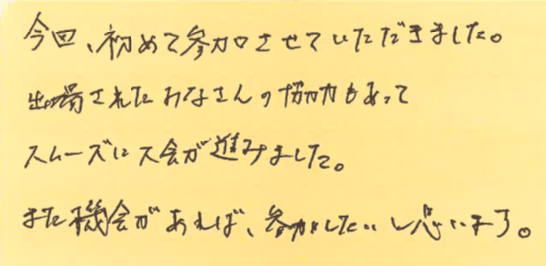 今回、初めて参加させていただきました。
出場されたみなさんの協力もあって
スムーズに大会が進みました。
また機会があれば、参加したいと思います。